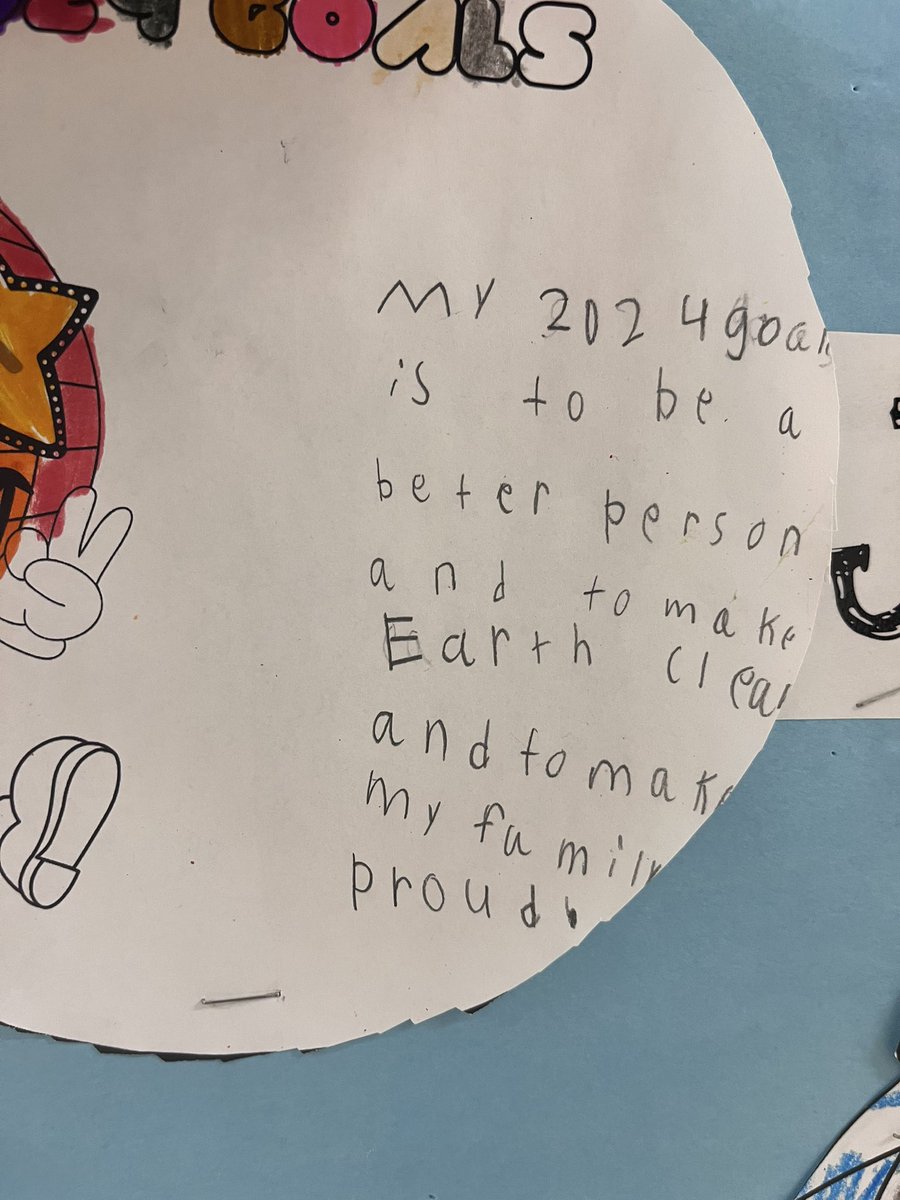 GOALS
My 2024 goals
is to be a
beter person
and to make
Earth clea
and to make
my family
proud